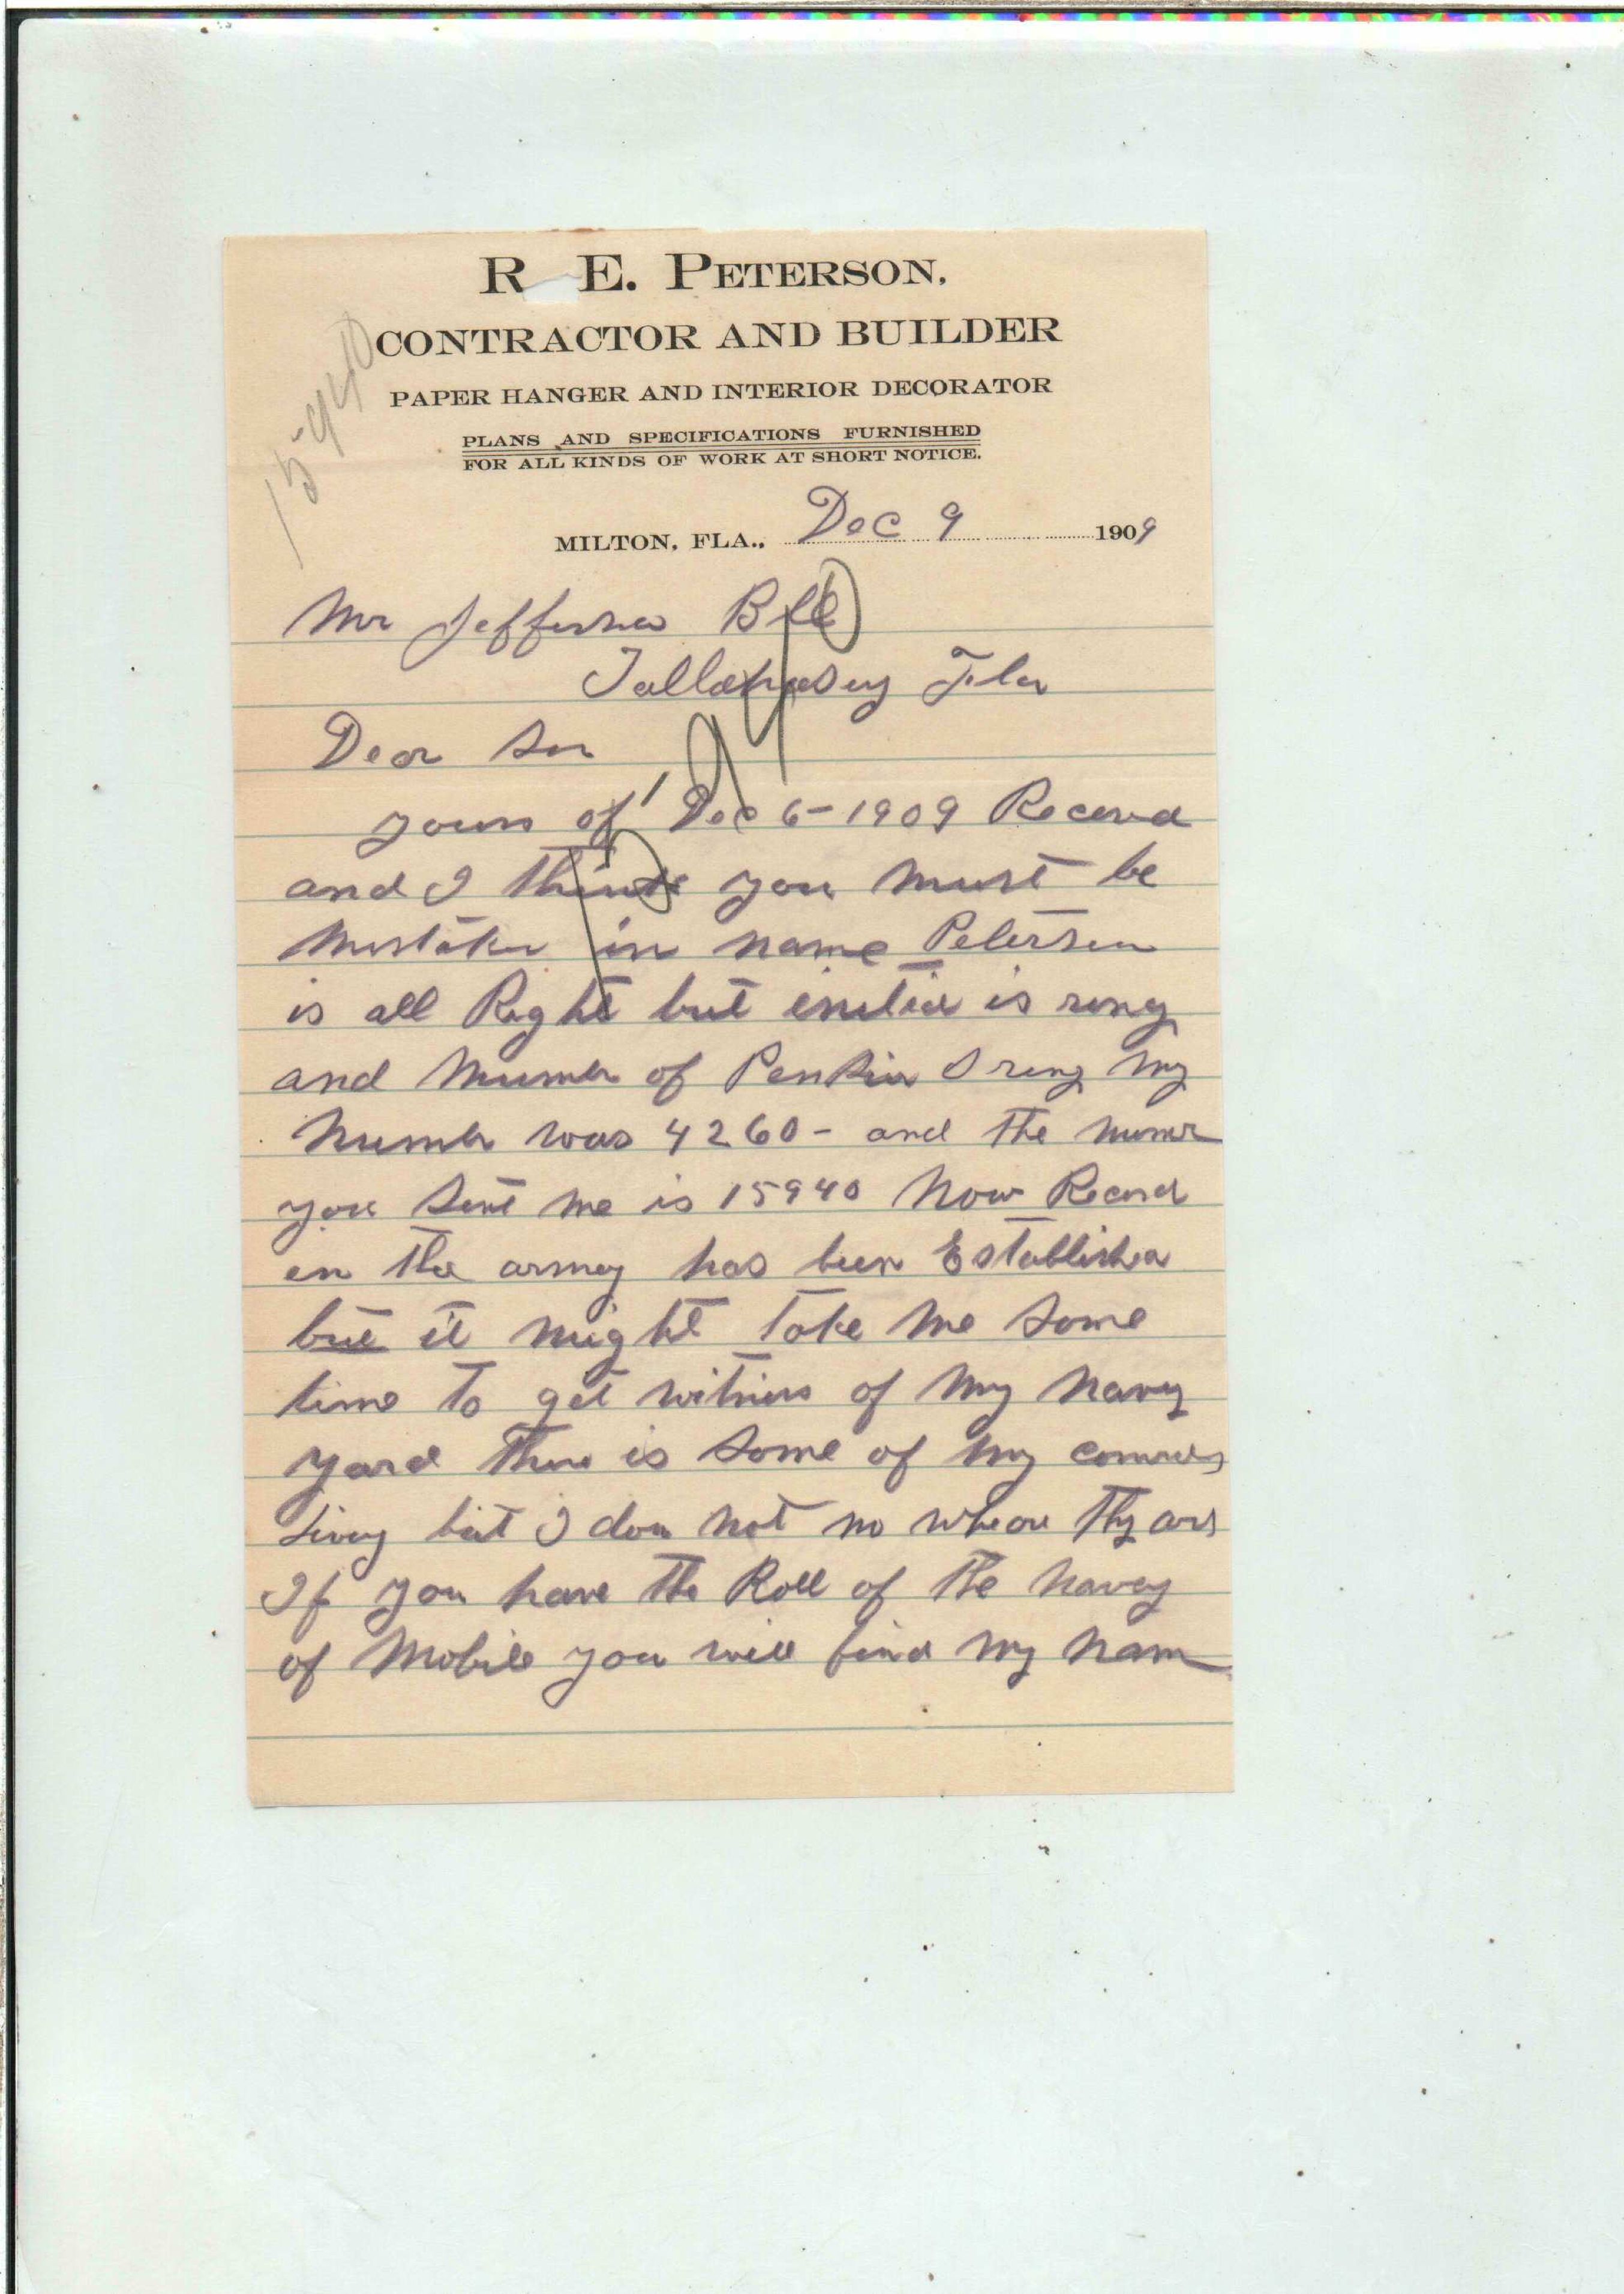 R E. PETERSON.
CONTRACTOR AND BUILDER
PAPER HANGER AND INTERIOR DECORATOR
PLANS AND SPECIFICATIONS FURNISHED
FOR ALL KINDS OF WORK AT SHORT NOTICE.
15940
MILTON, FLA., Dec 9 1909
Mr Jefferson Bell
Tallahasey Fla
Dear Sir
yours of Dec 6-1909 Receved
and I think you must be
Mistaken in name Peterson
is all Right but initial is rong
and Number of Pension I rong my
Number was 4260- and the numer
you Sent me is 15940 Now Record
in the army has been Established
but it might take me Some
time to get witness of my navey
yard There is Some of my comrades
Living but I don not no wheare They are
If you have the Roll of the navey
of Mobile you will find my nam
15940